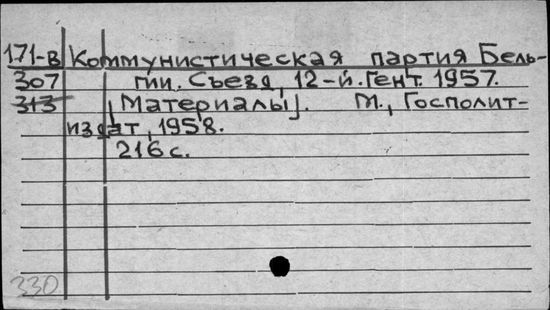 171-в Коммунистическая партия Бель-
307 гии. Съезд, 12-й. Гент. 1957.
313 [Материалы]. М., Госполит-
издат, 1958.
216 с.
330